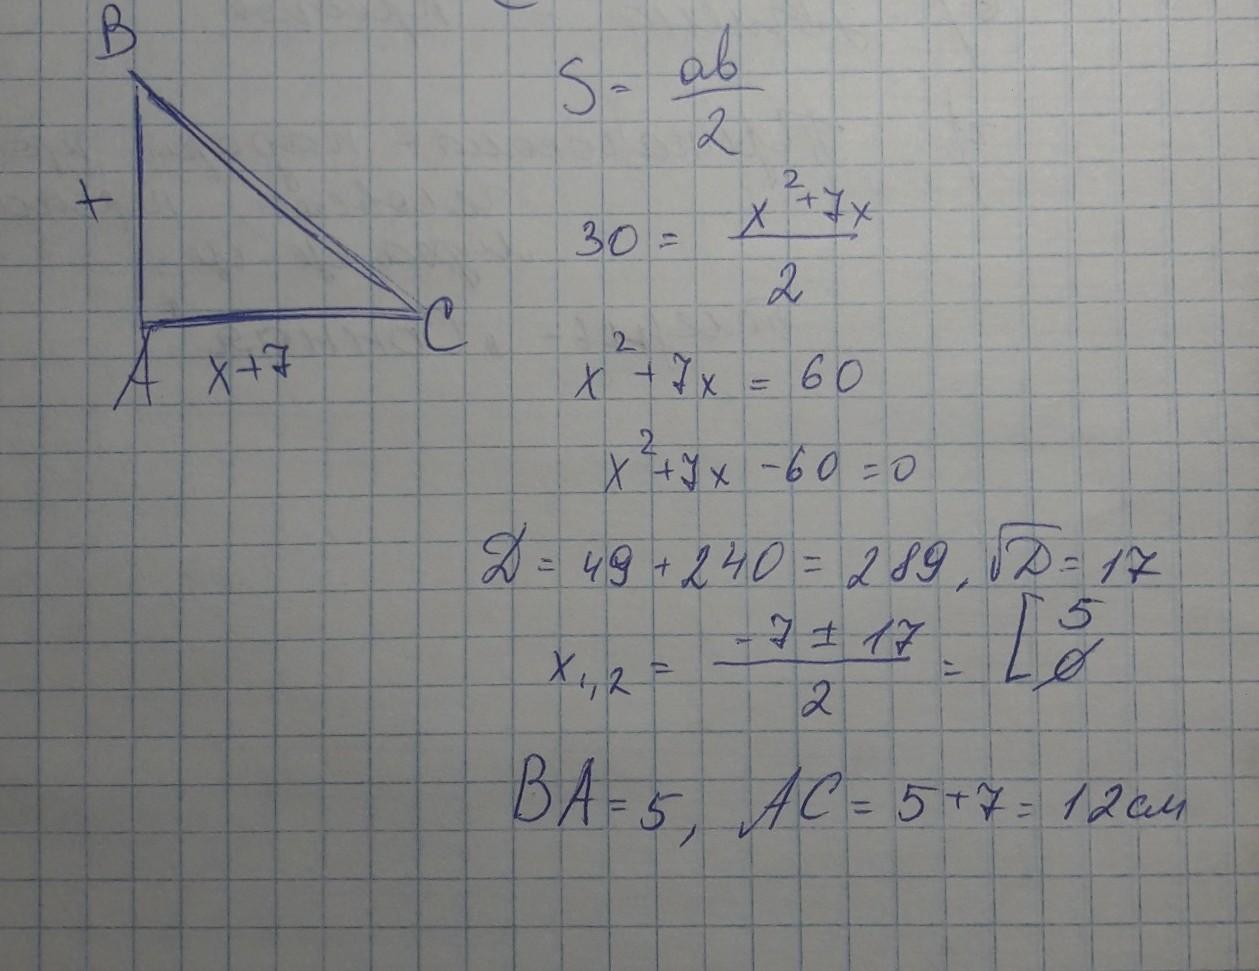 B
S = ab/2
x
30 = x²+7x/2
A x+7 C
x²+7x = 60
x²+7x -60 =0
D = 49 + 240 = 289, √D = 17
x₁,₂ = -7 ± 17/2 = [5 ∅
BA = 5, AC = 5+7 = 12см